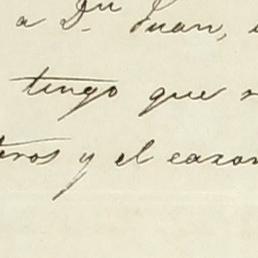 a Dn Juan,
tengo que
teros y el cazon